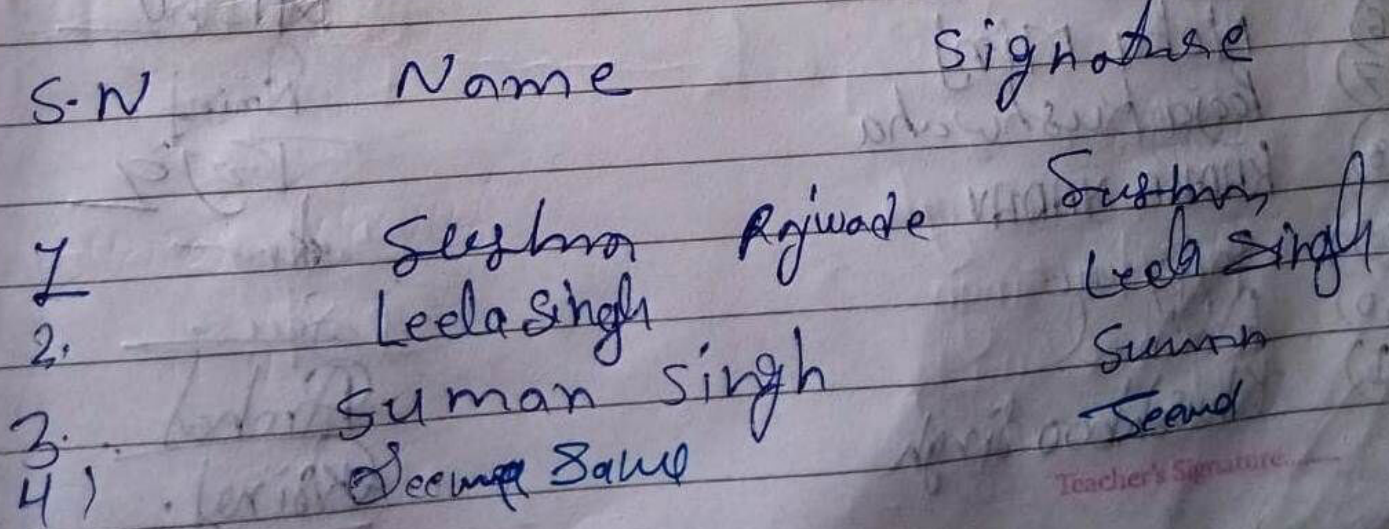 S.N Name Signature
1 Sushma Rajwade Sushma
2. Leela Singh Leela Singh
3. Suman Singh Suman
4) Seema Seema
Teacher's Signature.......